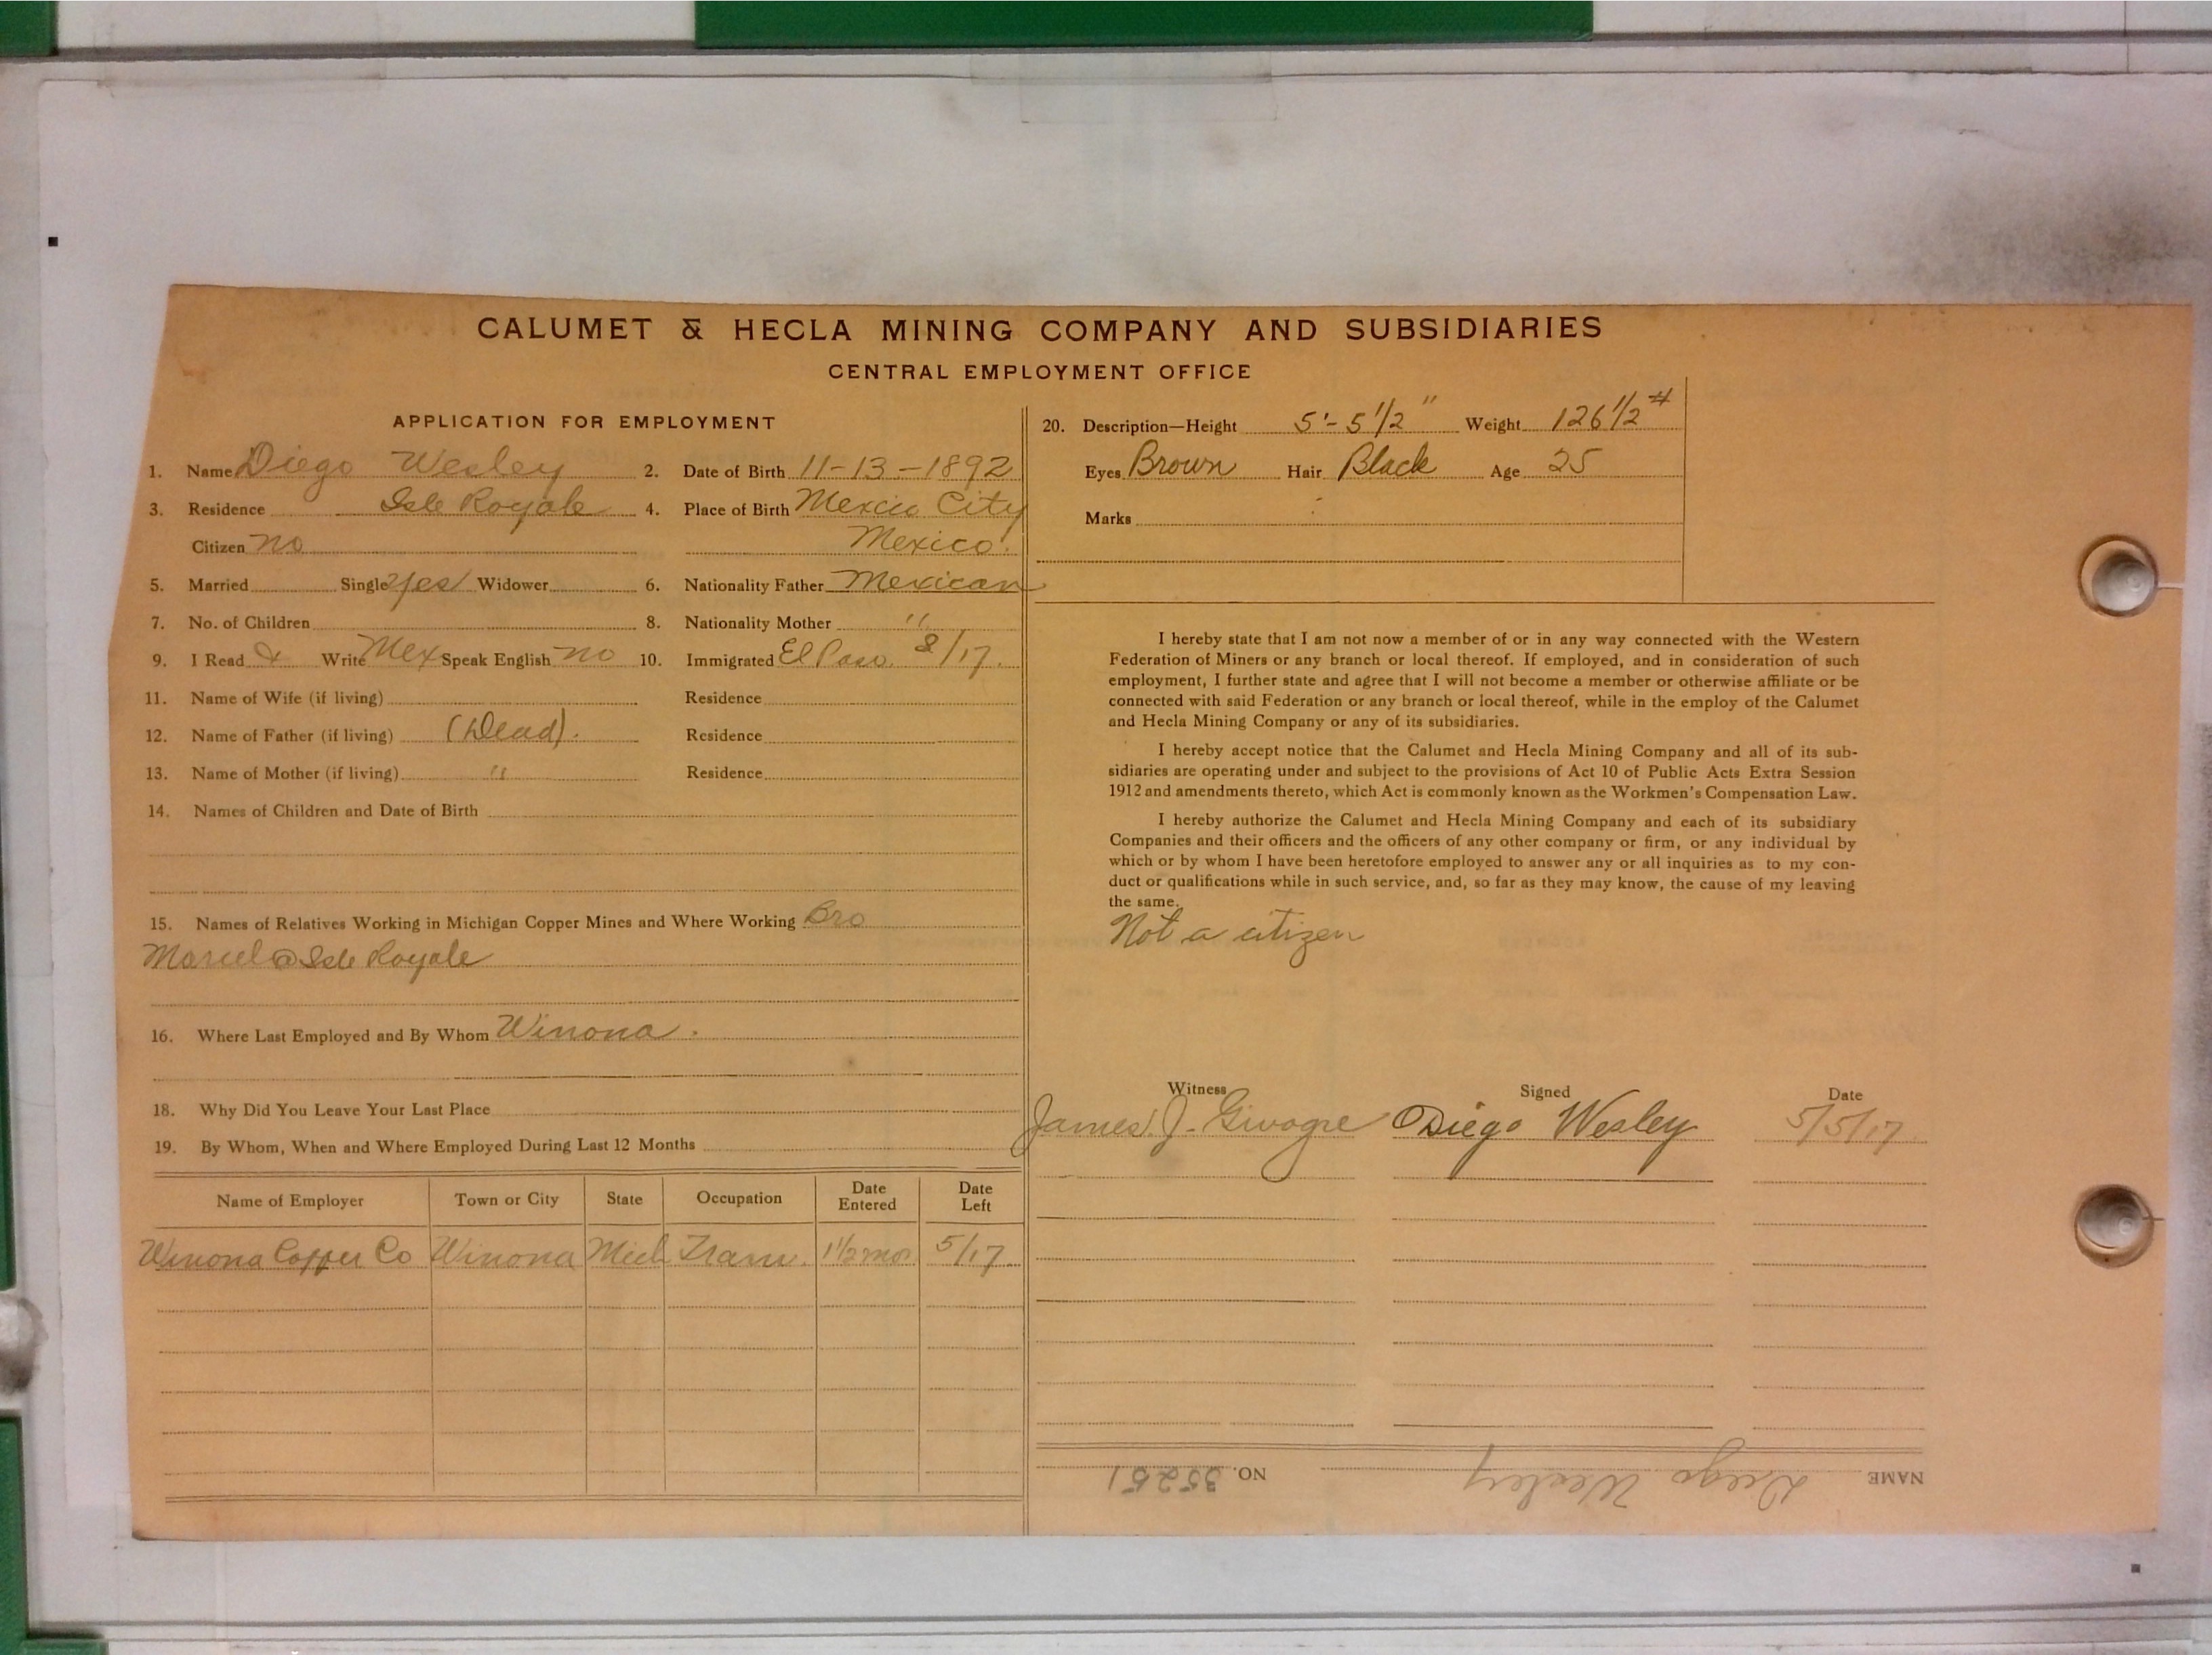 CALUMET & HECLA MINING COMPANY AND SUBSIDIARIES
CENTRAL EMPLOYMENT OFFICE
APPLICATION FOR EMPLOYMENT
1. Name Diego Wesley 2. Date of Birth 11-13-1892
3. Residence Isle Royale 4. Place of Birth Mexico City
Citizen no Mexico.
5. Married Single yes Widower 6. Nationality Father Mexican
7. No. of Children 8. Nationality Mother "
9. I Read & Write Mex Speak English no 10. Immigrated El Paso. 8/17.
11. Name of Wife (if living) Residence
12. Name of Father (if living) (Dead). Residence
13. Name of Mother (if living) " Residence
14. Names of Children and Date of Birth
15. Names of Relatives Working in Michigan Copper Mines and Where Working Bro
Marcel @ Isle Royale
16. Where Last Employed and By Whom Winona.
18. Why Did You Leave Your Last Place
19. By Whom, When and Where Employed During Last 12 Months
Name of Employer Town or City State Occupation Date Entered Date Left
Winona Copper Co Winona Mich Tram. 1 1/2 mos 5/17
20. Description—Height 5'-5 1/2" Weight 126 1/2 #
Eyes Brown Hair Black Age 25
Marks
I hereby state that I am not now a member of or in any way connected with the Western
Federation of Miners or any branch or local thereof. If employed, and in consideration of such
employment, I further state and agree that I will not become a member or otherwise affiliate or be
connected with said Federation or any branch or local thereof, while in the employ of the Calumet
and Hecla Mining Company or any of its subsidiaries.
I hereby accept notice that the Calumet and Hecla Mining Company and all of its sub-
sidiaries are operating under and subject to the provisions of Act 10 of Public Acts Extra Session
1912 and amendments thereto, which Act is commonly known as the Workmen's Compensation Law.
I hereby authorize the Calumet and Hecla Mining Company and each of its subsidiary
Companies and their officers and the officers of any other company or firm, or any individual by
which or by whom I have been heretofore employed to answer any or all inquiries as to my con-
duct or qualifications while in such service, and, so far as they may know, the cause of my leaving
the same.
Not a citizen
Witness Signed Date
James J. Diego Wesley 5/5/17
NAME Diego Wesley NO. 35251